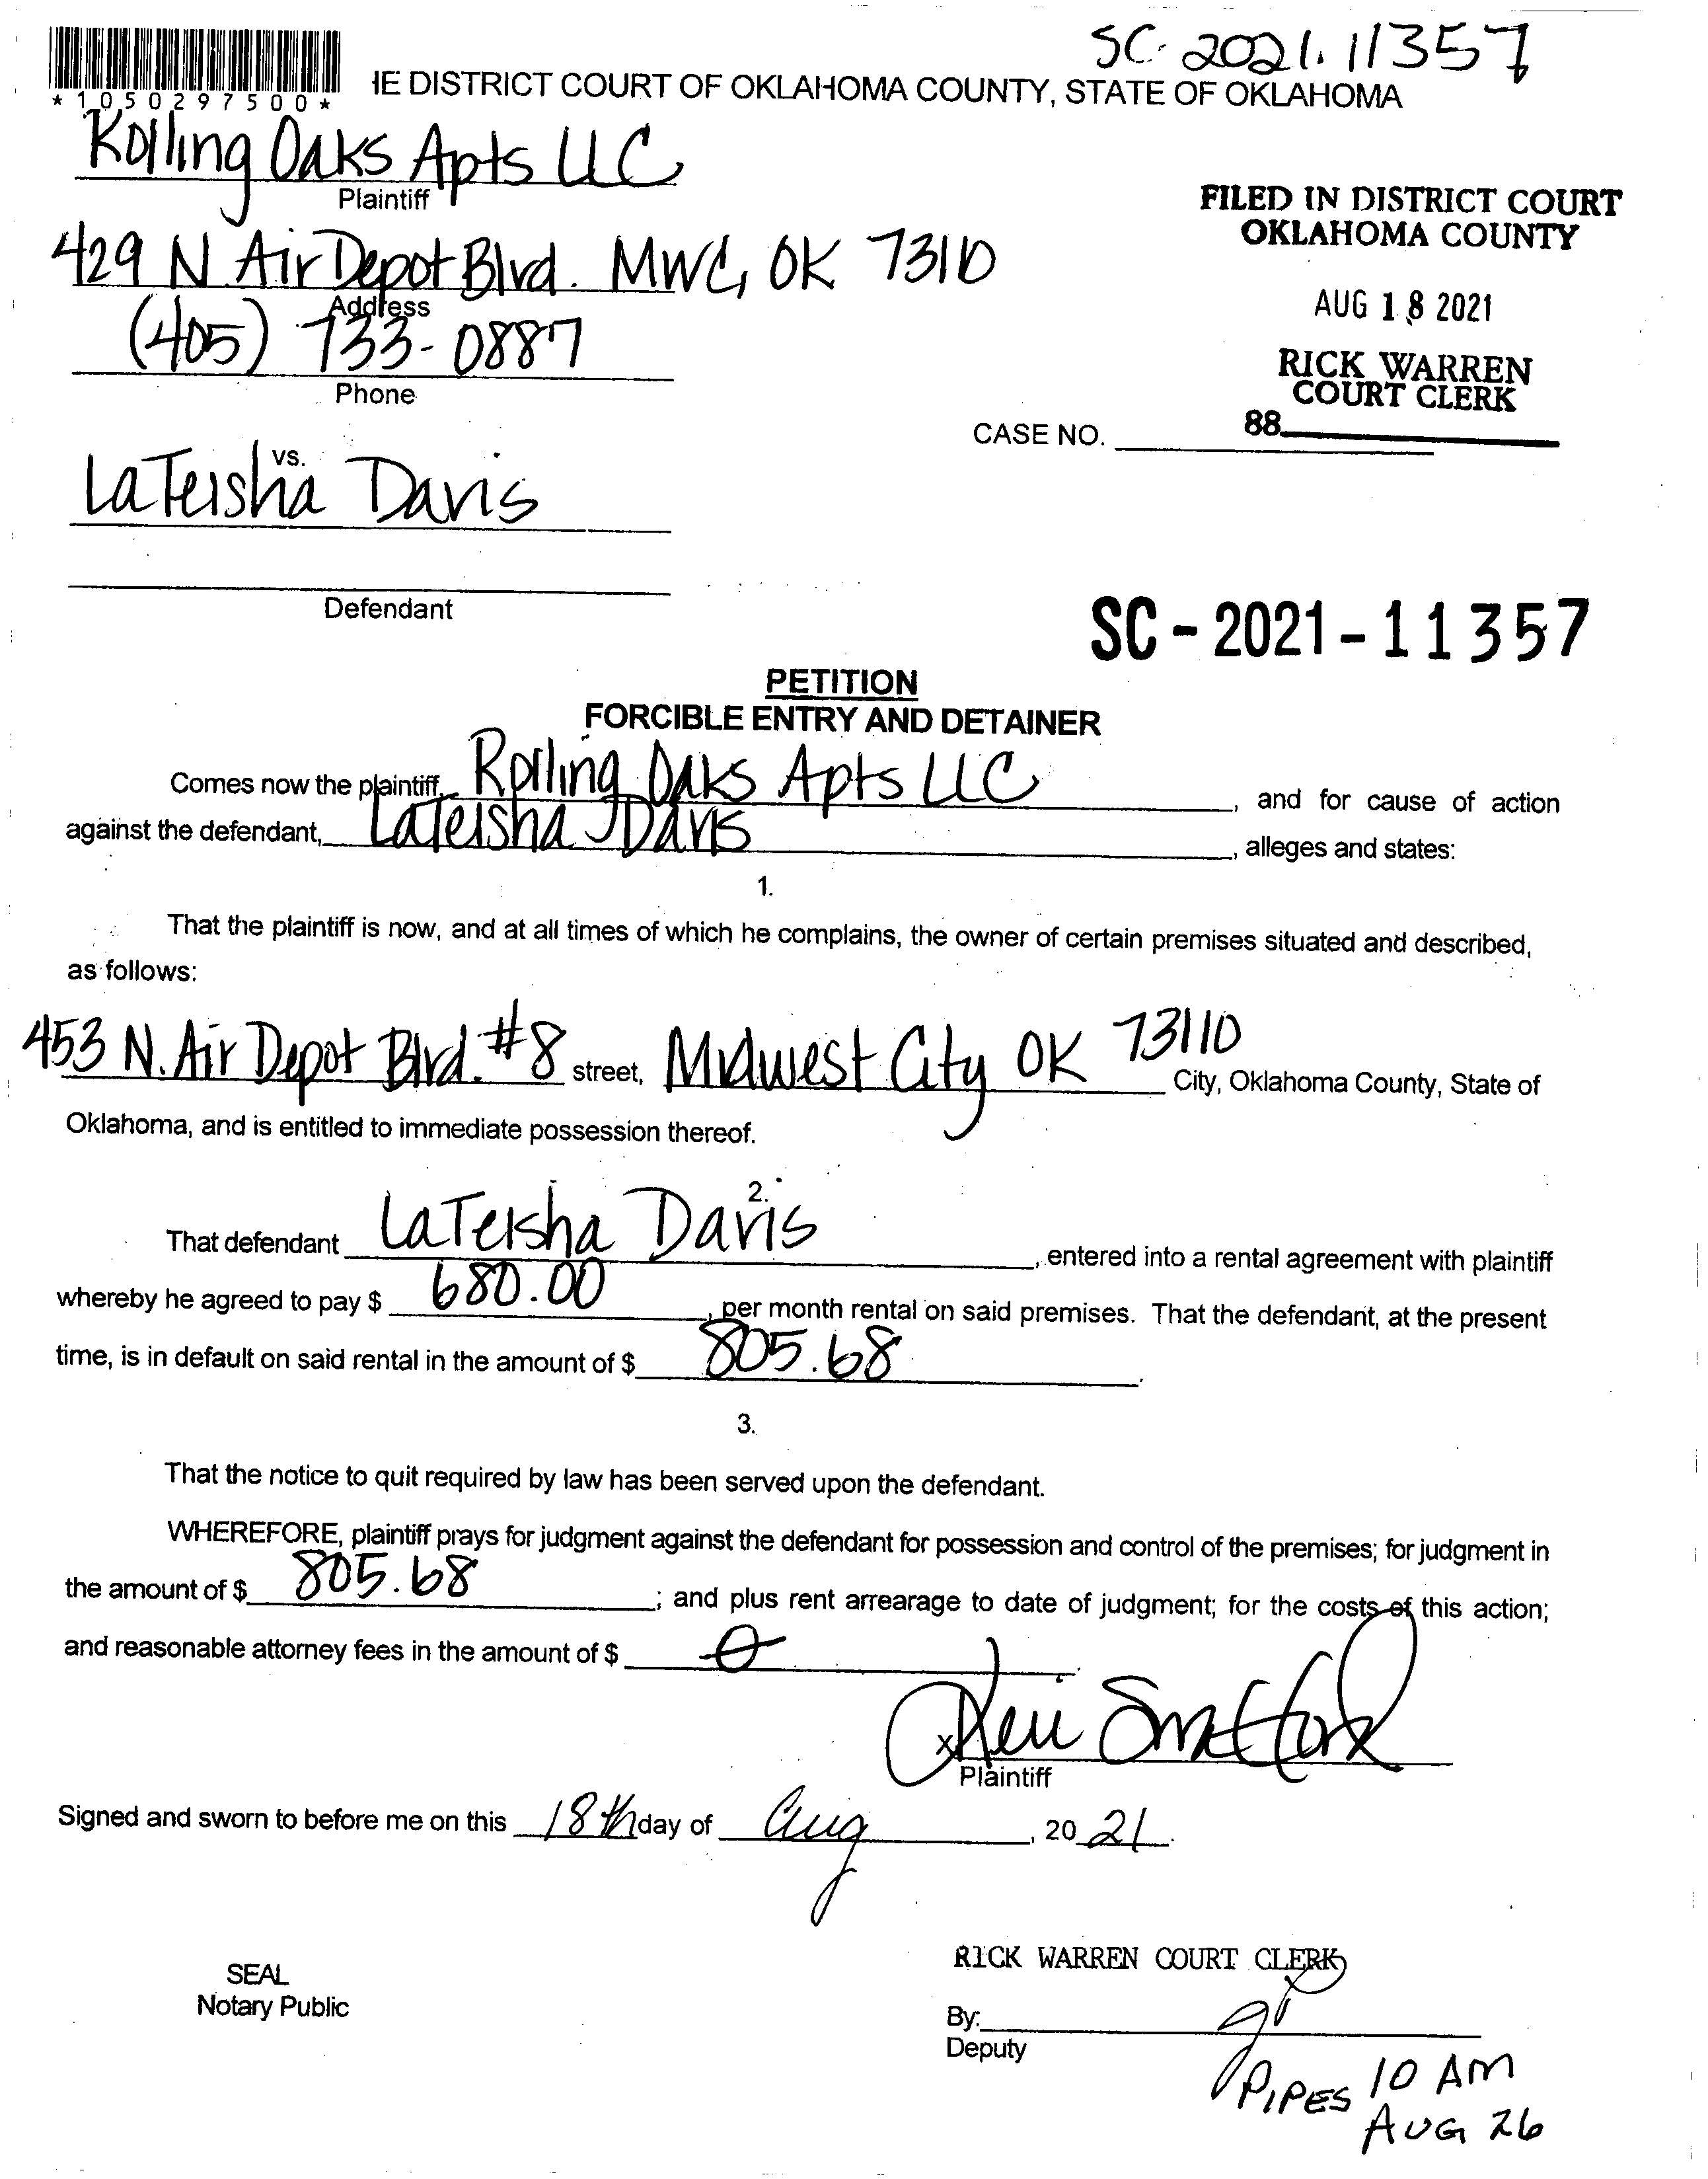 SC-2021-11357
*1050297500*
IE DISTRICT COURT OF OKLAHOMA COUNTY, STATE OF OKLAHOMA
Rolling Oaks Apts LLC
Plaintiff
FILED IN DISTRICT COURT
OKLAHOMA COUNTY
429 N Air Depot Blvd. MWC, OK 73110
Address
AUG 18 2021
(405) 733-0887
Phone
RICK WARREN
COURT CLERK
CASE NO.
88
vs.
LaTeisha Davis
Defendant
SC-2021-11357
PETITION
FORCIBLE ENTRY AND DETAINER
Comes now the plaintiff, Rolling Oaks Apts LLC, and for cause of action
against the defendant, LaTeisha Davis, alleges and states:
1.
That the plaintiff is now, and at all times of which he complains, the owner of certain premises situated and described,
as follows:
453 N. Air Depot Blvd. #8 street, Midwest City OK 73110 City, Oklahoma County, State of
Oklahoma, and is entitled to immediate possession thereof.
2.
That defendant LaTeisha Davis, entered into a rental agreement with plaintiff
whereby he agreed to pay $ 680.00, per month rental on said premises. That the defendant, at the present
time, is in default on said rental in the amount of $ 805.68.
3.
That the notice to quit required by law has been served upon the defendant.
WHEREFORE, plaintiff prays for judgment against the defendant for possession and control of the premises; for judgment in
the amount of $ 805.68; and plus rent arrearage to date of judgment; for the costs of this action;
and reasonable attorney fees in the amount of $ 0
x
Plaintiff
Signed and sworn to before me on this 18th day of Aug, 2021.
SEAL
Notary Public
RICK WARREN COURT CLERK
By:
Deputy
PIPES 10 AM
AUG 26